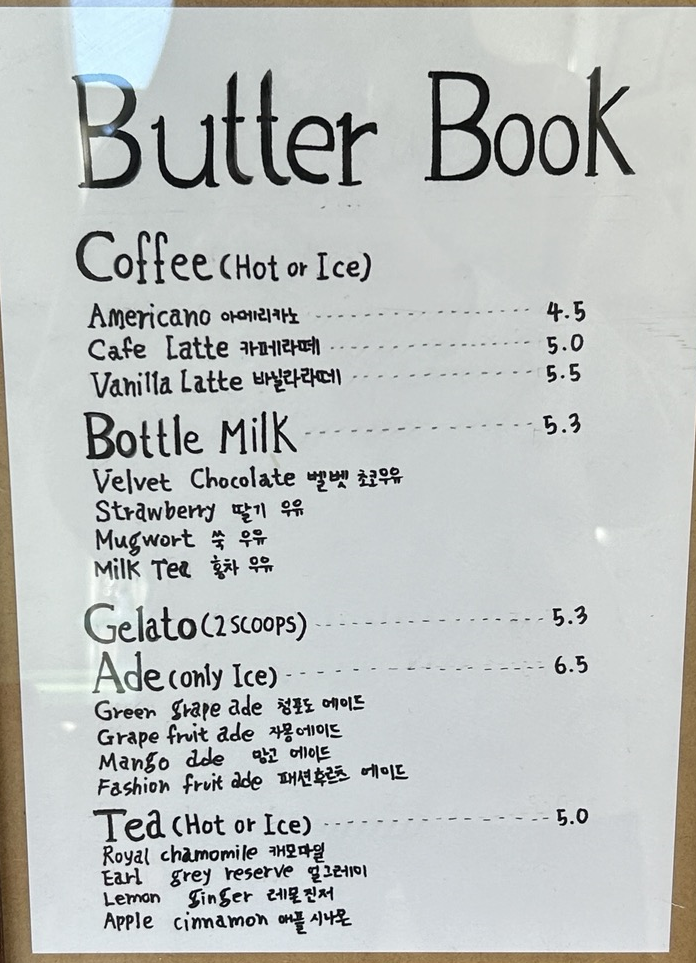 Butter Book
Coffee (Hot or Ice)
Americano 아메리카노 4.5
Cafe Latte 카페라떼 5.0
Vanilla Latte 바닐라라떼 5.5
Bottle Milk 5.3
Velvet Chocolate 벨벳 초코우유
Strawberry 딸기 우유
Mugwort 쑥 우유
Milk Tea 홍차 우유
Gelato (2 SCOOPS) 5.3
Ade (only Ice) 6.5
Green grape ade 청포도 에이드
Grape fruit ade 자몽에이드
Mango ade 망고 에이드
Fashion fruit ade 패션후르츠 에이드
Tea (Hot or Ice) 5.0
Royal chamomile 캐모마일
Earl grey reserve 얼그레이
Lemon ginger 레몬진저
Apple cinnamon 애플시나몬